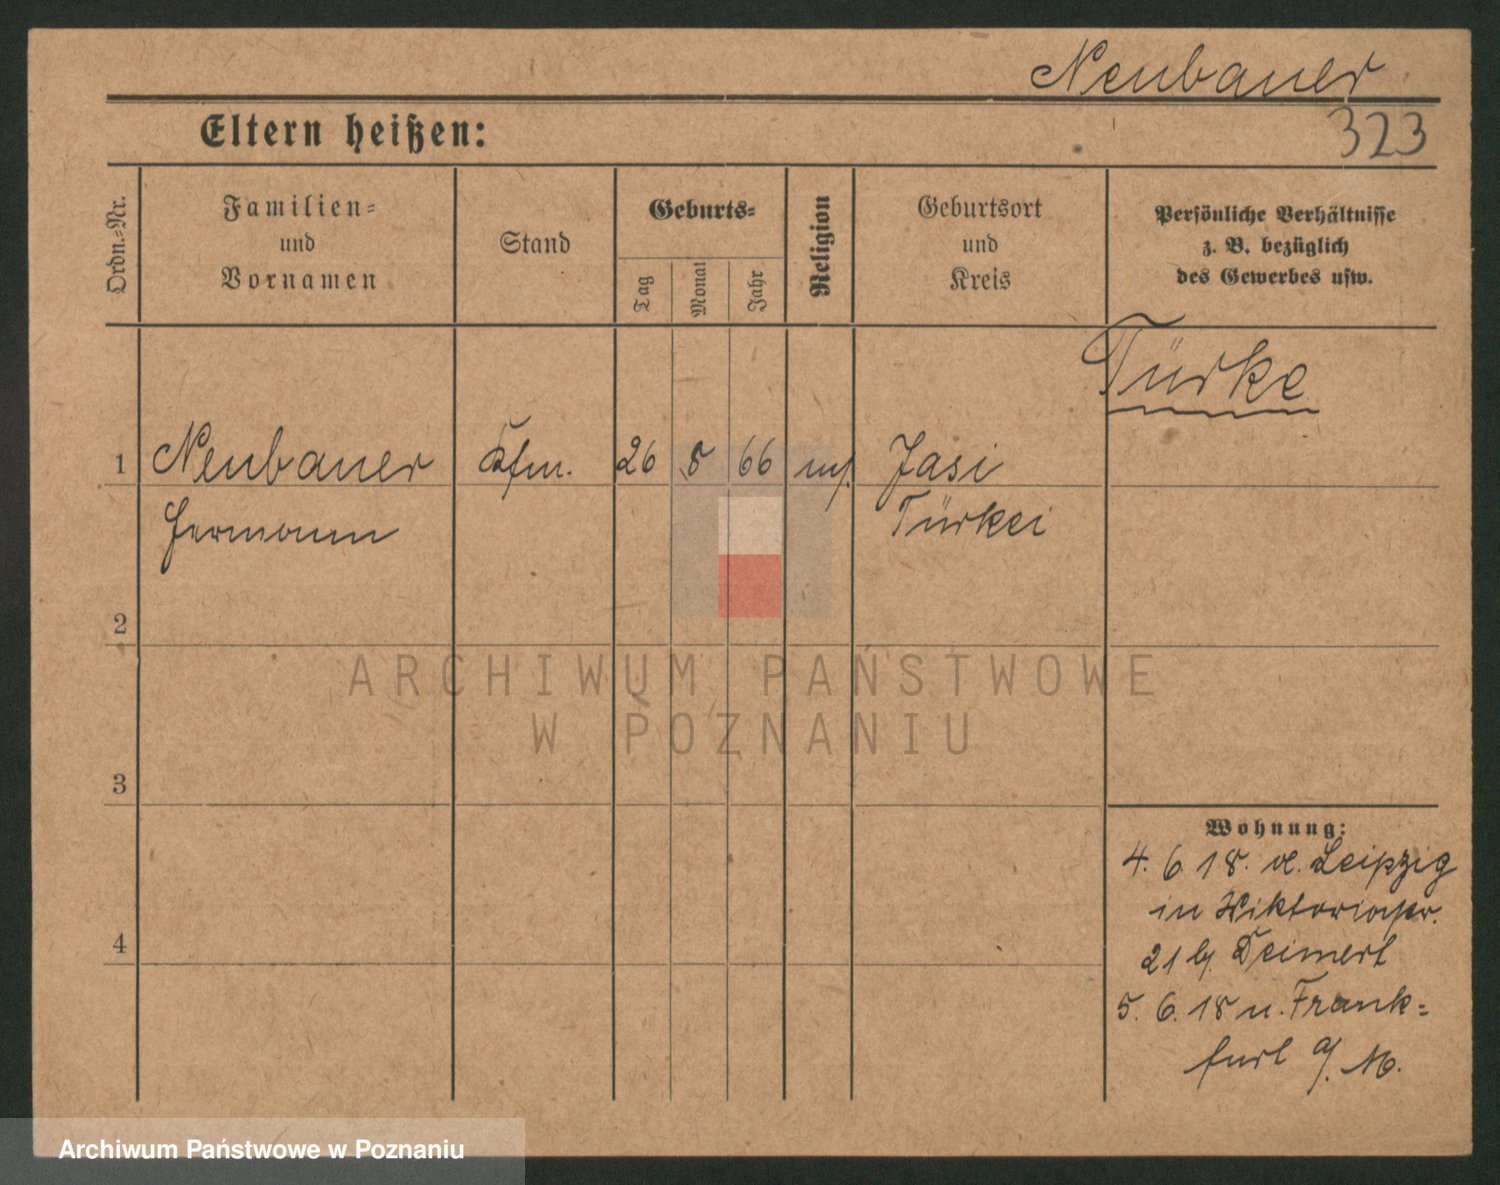 Neubauer
Eltern heißen:
323
Ordn.-Nr.
Familien- und Vornamen
Stand
Geburts-
Tag
Monat
Jahr
Religion
Geburtsort und Kreis
Persönliche Verhältnisse
z. B. bezüglich
des Gewerbes usw.
Türke
1 Neubauer Kfm. 26 8 66 Jasi
Hermann Türkei
2
ARCHIWUM PAŃSTWOWE
W POZNANIU
3
Wohnung:
4. 6. 18. Leipzig
in Viktoriastr.
21 b.
4
5. 6. 18 n. Frank=
furt a/M.
Archiwum Państwowe w Poznaniu